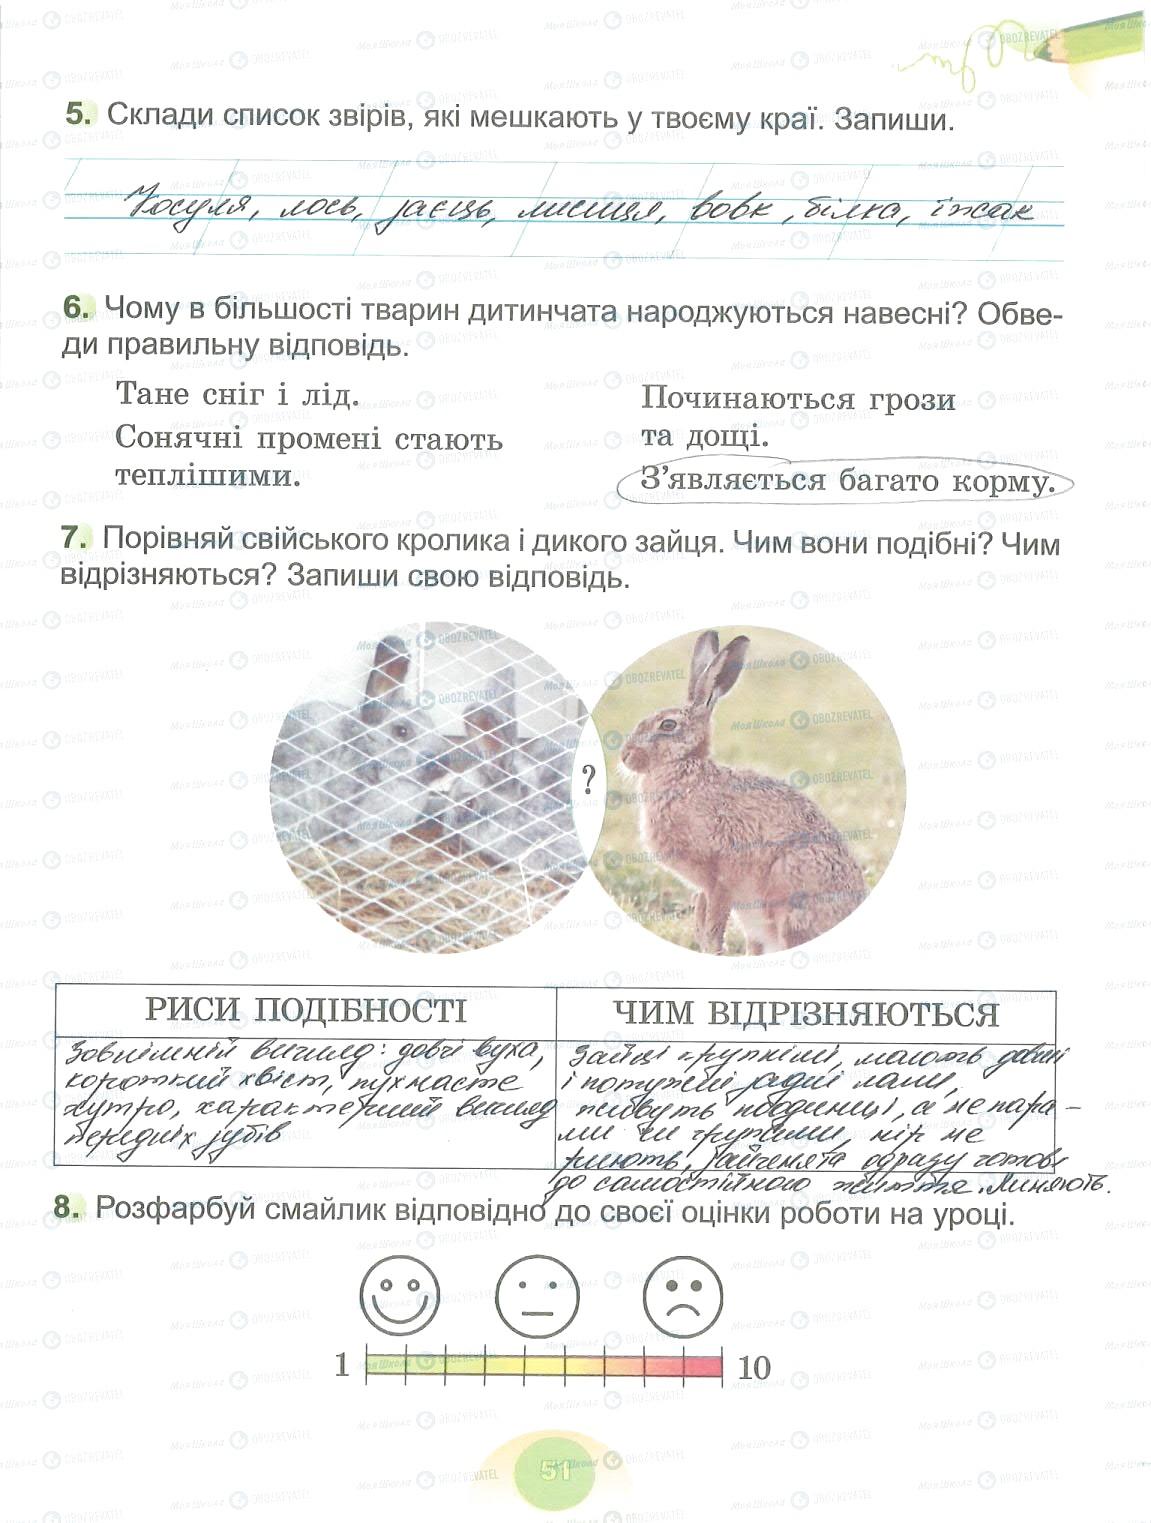 5. Склади список звірів, які мешкають у твоєму краї. Запиши.
Косуля, лось, заєць, лисиця, вовк, білка, їжак
6. Чому в більшості тварин дитинчата народжуються навесні? Обве-
ди правильну відповідь.
Тане сніг і лід.
Сонячні промені стають
теплішими.
Починаються грози
та дощі.
З’являється багато корму.
7. Порівняй свійського кролика і дикого зайця. Чим вони подібні? Чим
відрізняються? Запиши свою відповідь.
?
РИСИ ПОДІБНОСТІ
Зовнішній вигляд: довгі вуха,
короткий хвіст, пухнасте
хутро, характерний вигляд
передніх зубів
ЧИМ ВІДРІЗНЯЮТЬСЯ
Зайці крупніші, мають довші
і потужні задні лапи,
живуть поодинці, а не пара-
ми чи групами, нір не
риють, зайченята одразу готові
до самостійного життя. Линяють.
8. Розфарбуй смайлик відповідно до своєї оцінки роботи на уроці.
1 10
51
Моя Школа OBOZREVATEL